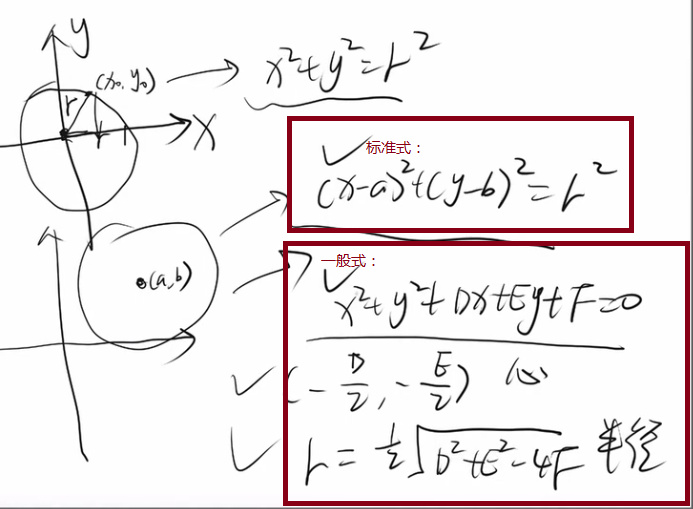 y
(x₀, y₀)
x²+y²=r²
r
x
标准式：
(x-a)²+(y-b)²=r²
(a,b)
一般式：
x²+y²+Dx+Ey+F=0
(-D/2, -E/2) 心
r=½√(D²+E²-4F) 半径